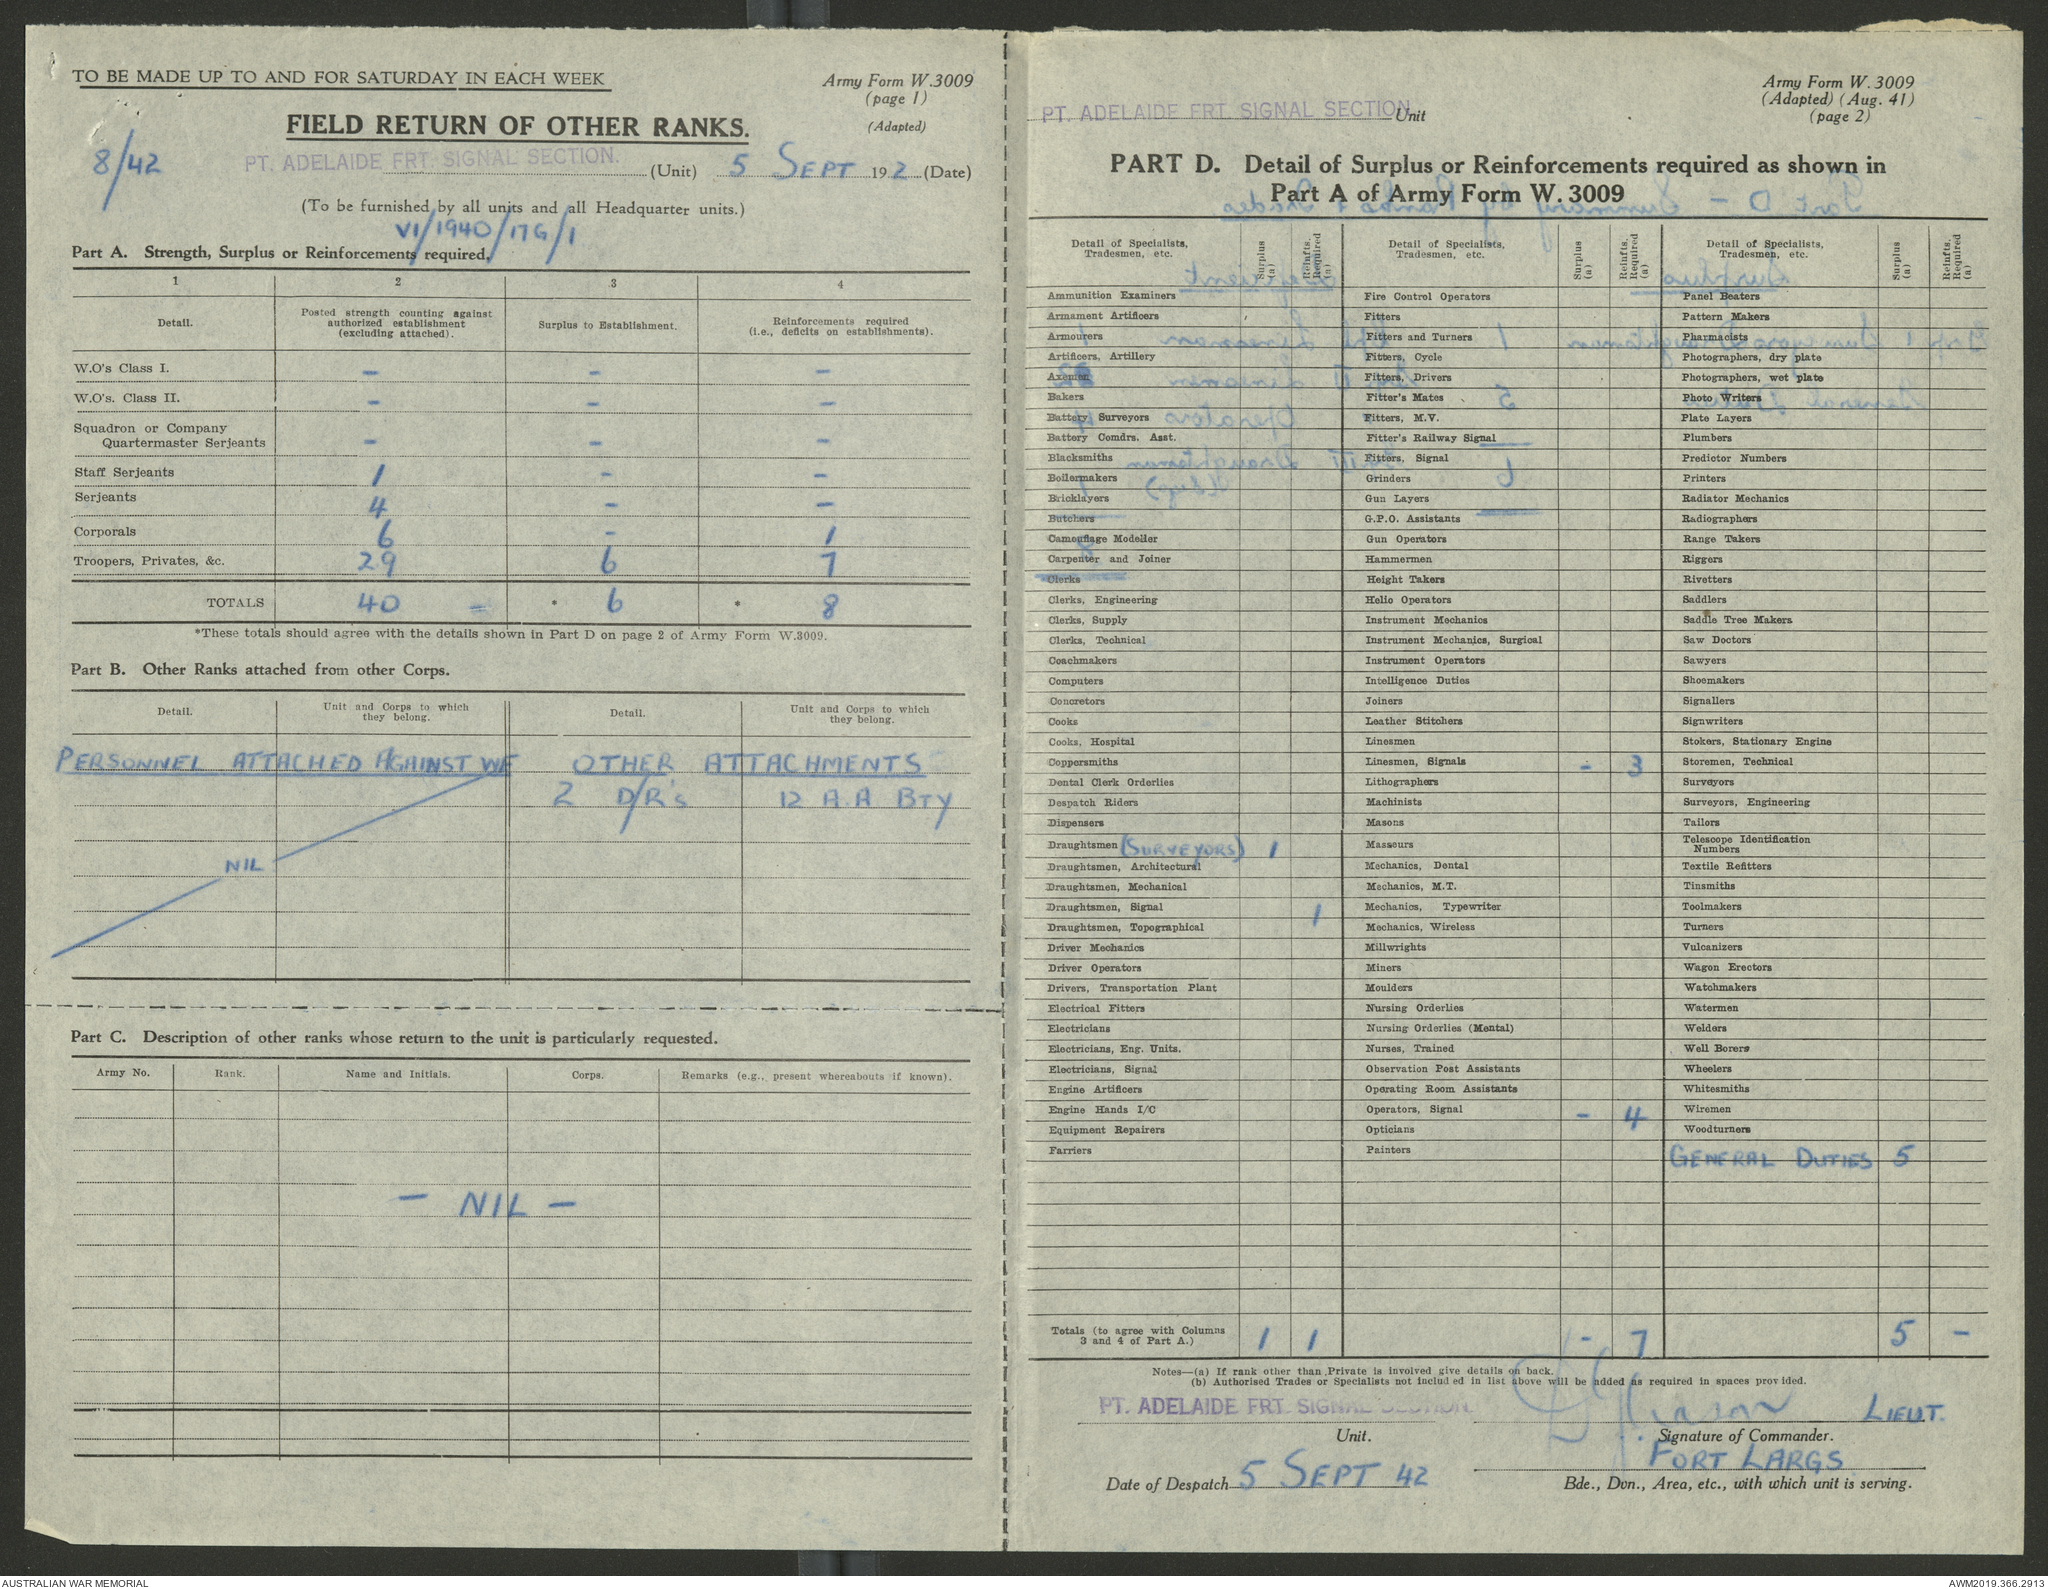 TO BE MADE UP TO AND FOR SATURDAY IN EACH WEEK
Army Form W.3009
(page 1)
(Adapted)
FIELD RETURN OF OTHER RANKS.
8/42
PT. ADELAIDE FRT. SIGNAL SECTION. (Unit) 5 SEPT 192 2 (Date)
(To be furnished by all units and all Headquarter units.)
VI/1940/17G/1
Part A. Strength, Surplus or Reinforcements required.
1 2 3 4
Detail. Posted strength counting against authorized establishment (excluding attached). Surplus to Establishment. Reinforcements required (i.e., deficits on establishments).
W.O's Class I. - - -
W.O's. Class II. - - -
Squadron or Company
Quartermaster Serjeants - - -
Staff Serjeants 1 - -
Serjeants 4 - -
Corporals 6 - 1
Troopers, Privates, &c. 29 6 7
TOTALS 40 * 6 * 8
*These totals should agree with the details shown in Part D on page 2 of Army Form W.3009.
Part B. Other Ranks attached from other Corps.
Detail. Unit and Corps to which they belong. Detail. Unit and Corps to which they belong.
PERSONNEL ATTACHED AGAINST WE OTHER ATTACHMENTS
2 D/R's 12 A.A BTY
NIL
Part C. Description of other ranks whose return to the unit is particularly requested.
Army No. Rank. Name and Initials. Corps. Remarks (e.g., present whereabouts if known).
- NIL -
Army Form W.3009
(Adapted) (Aug. 41)
(page 2)
PT. ADELAIDE FRT. SIGNAL SECTION. Unit
PART D. Detail of Surplus or Reinforcements required as shown in
Part A of Army Form W.3009
Detail of Specialists, Tradesmen, etc. Surplus (a) Reinfts. Required (a)
Ammunition Examiners
Armament Artificers
Armourers
Artificers, Artillery
Axemen
Bakers
Battery Surveyors
Battery Comdrs. Asst.
Blacksmiths
Boilermakers
Bricklayers
Butchers
Camouflage Modeller
Carpenter and Joiner
Clerks
Clerks, Engineering
Clerks, Supply
Clerks, Technical
Coachmakers
Computers
Concretors
Cooks
Cooks, Hospital
Coppersmiths
Dental Clerk Orderlies
Despatch Riders
Dispensers
Draughtsmen (SURVEYORS) 1
Draughtsmen, Architectural
Draughtsmen, Mechanical
Draughtsmen, Signal 1
Draughtsmen, Topographical
Driver Mechanics
Driver Operators
Drivers, Transportation Plant
Electrical Fitters
Electricians
Electricians, Eng. Units.
Electricians, Signal
Engine Artificers
Engine Hands I/C
Equipment Repairers
Farriers
Detail of Specialists, Tradesmen, etc. Surplus (a) Reinfts. Required (a)
Fire Control Operators
Fitters
Fitters and Turners
Fitters, Cycle
Fitters, Drivers
Fitter's Mates
Fitters, M.V.
Fitter's Railway Signal
Fitters, Signal
Grinders
Gun Layers
G.P.O. Assistants
Gun Operators
Hammermen
Height Takers
Helio Operators
Instrument Mechanics
Instrument Mechanics, Surgical
Instrument Operators
Intelligence Duties
Joiners
Leather Stitchers
Linesmen
Linesmen, Signals - 3
Lithographers
Machinists
Masons
Masseurs
Mechanics, Dental
Mechanics, M.T.
Mechanics, Typewriter
Mechanics, Wireless
Millwrights
Miners
Moulders
Nursing Orderlies
Nursing Orderlies (Mental)
Nurses, Trained
Observation Post Assistants
Operating Room Assistants
Operators, Signal - 4
Opticians
Painters
Detail of Specialists, Tradesmen, etc. Surplus (a) Reinfts. Required (a)
Panel Beaters
Pattern Makers
Pharmacists
Photographers, dry plate
Photographers, wet plate
Photo Writers
Plate Layers
Plumbers
Predictor Numbers
Printers
Radiator Mechanics
Radiographers
Range Takers
Riggers
Rivetters
Saddlers
Saddle Tree Makers
Saw Doctors
Sawyers
Shoemakers
Signallers
Signwriters
Stokers, Stationary Engine
Storemen, Technical
Surveyors
Surveyors, Engineering
Tailors
Telescope Identification
Numbers
Textile Refitters
Tinsmiths
Toolmakers
Turners
Vulcanizers
Wagon Erectors
Watchmakers
Watermen
Welders
Well Borers
Wheelers
Whitesmiths
Wiremen
Woodturners
GENERAL DUTIES 5
Totals (to agree with Columns
3 and 4 of Part A.) 1 1 - 7 5 -
Notes—(a) If rank other than Private is involved give details on back.
(b) Authorised Trades or Specialists not included in list above will be added as required in spaces provided.
PT. ADELAIDE FRT. SIGNAL SECTION. LIEUT.
Unit. Signature of Commander.
FORT LARGS
Date of Despatch 5 SEPT 42 Bde., Dvn., Area, etc., with which unit is serving.
AUSTRALIAN WAR MEMORIAL AWM2019.366.2913